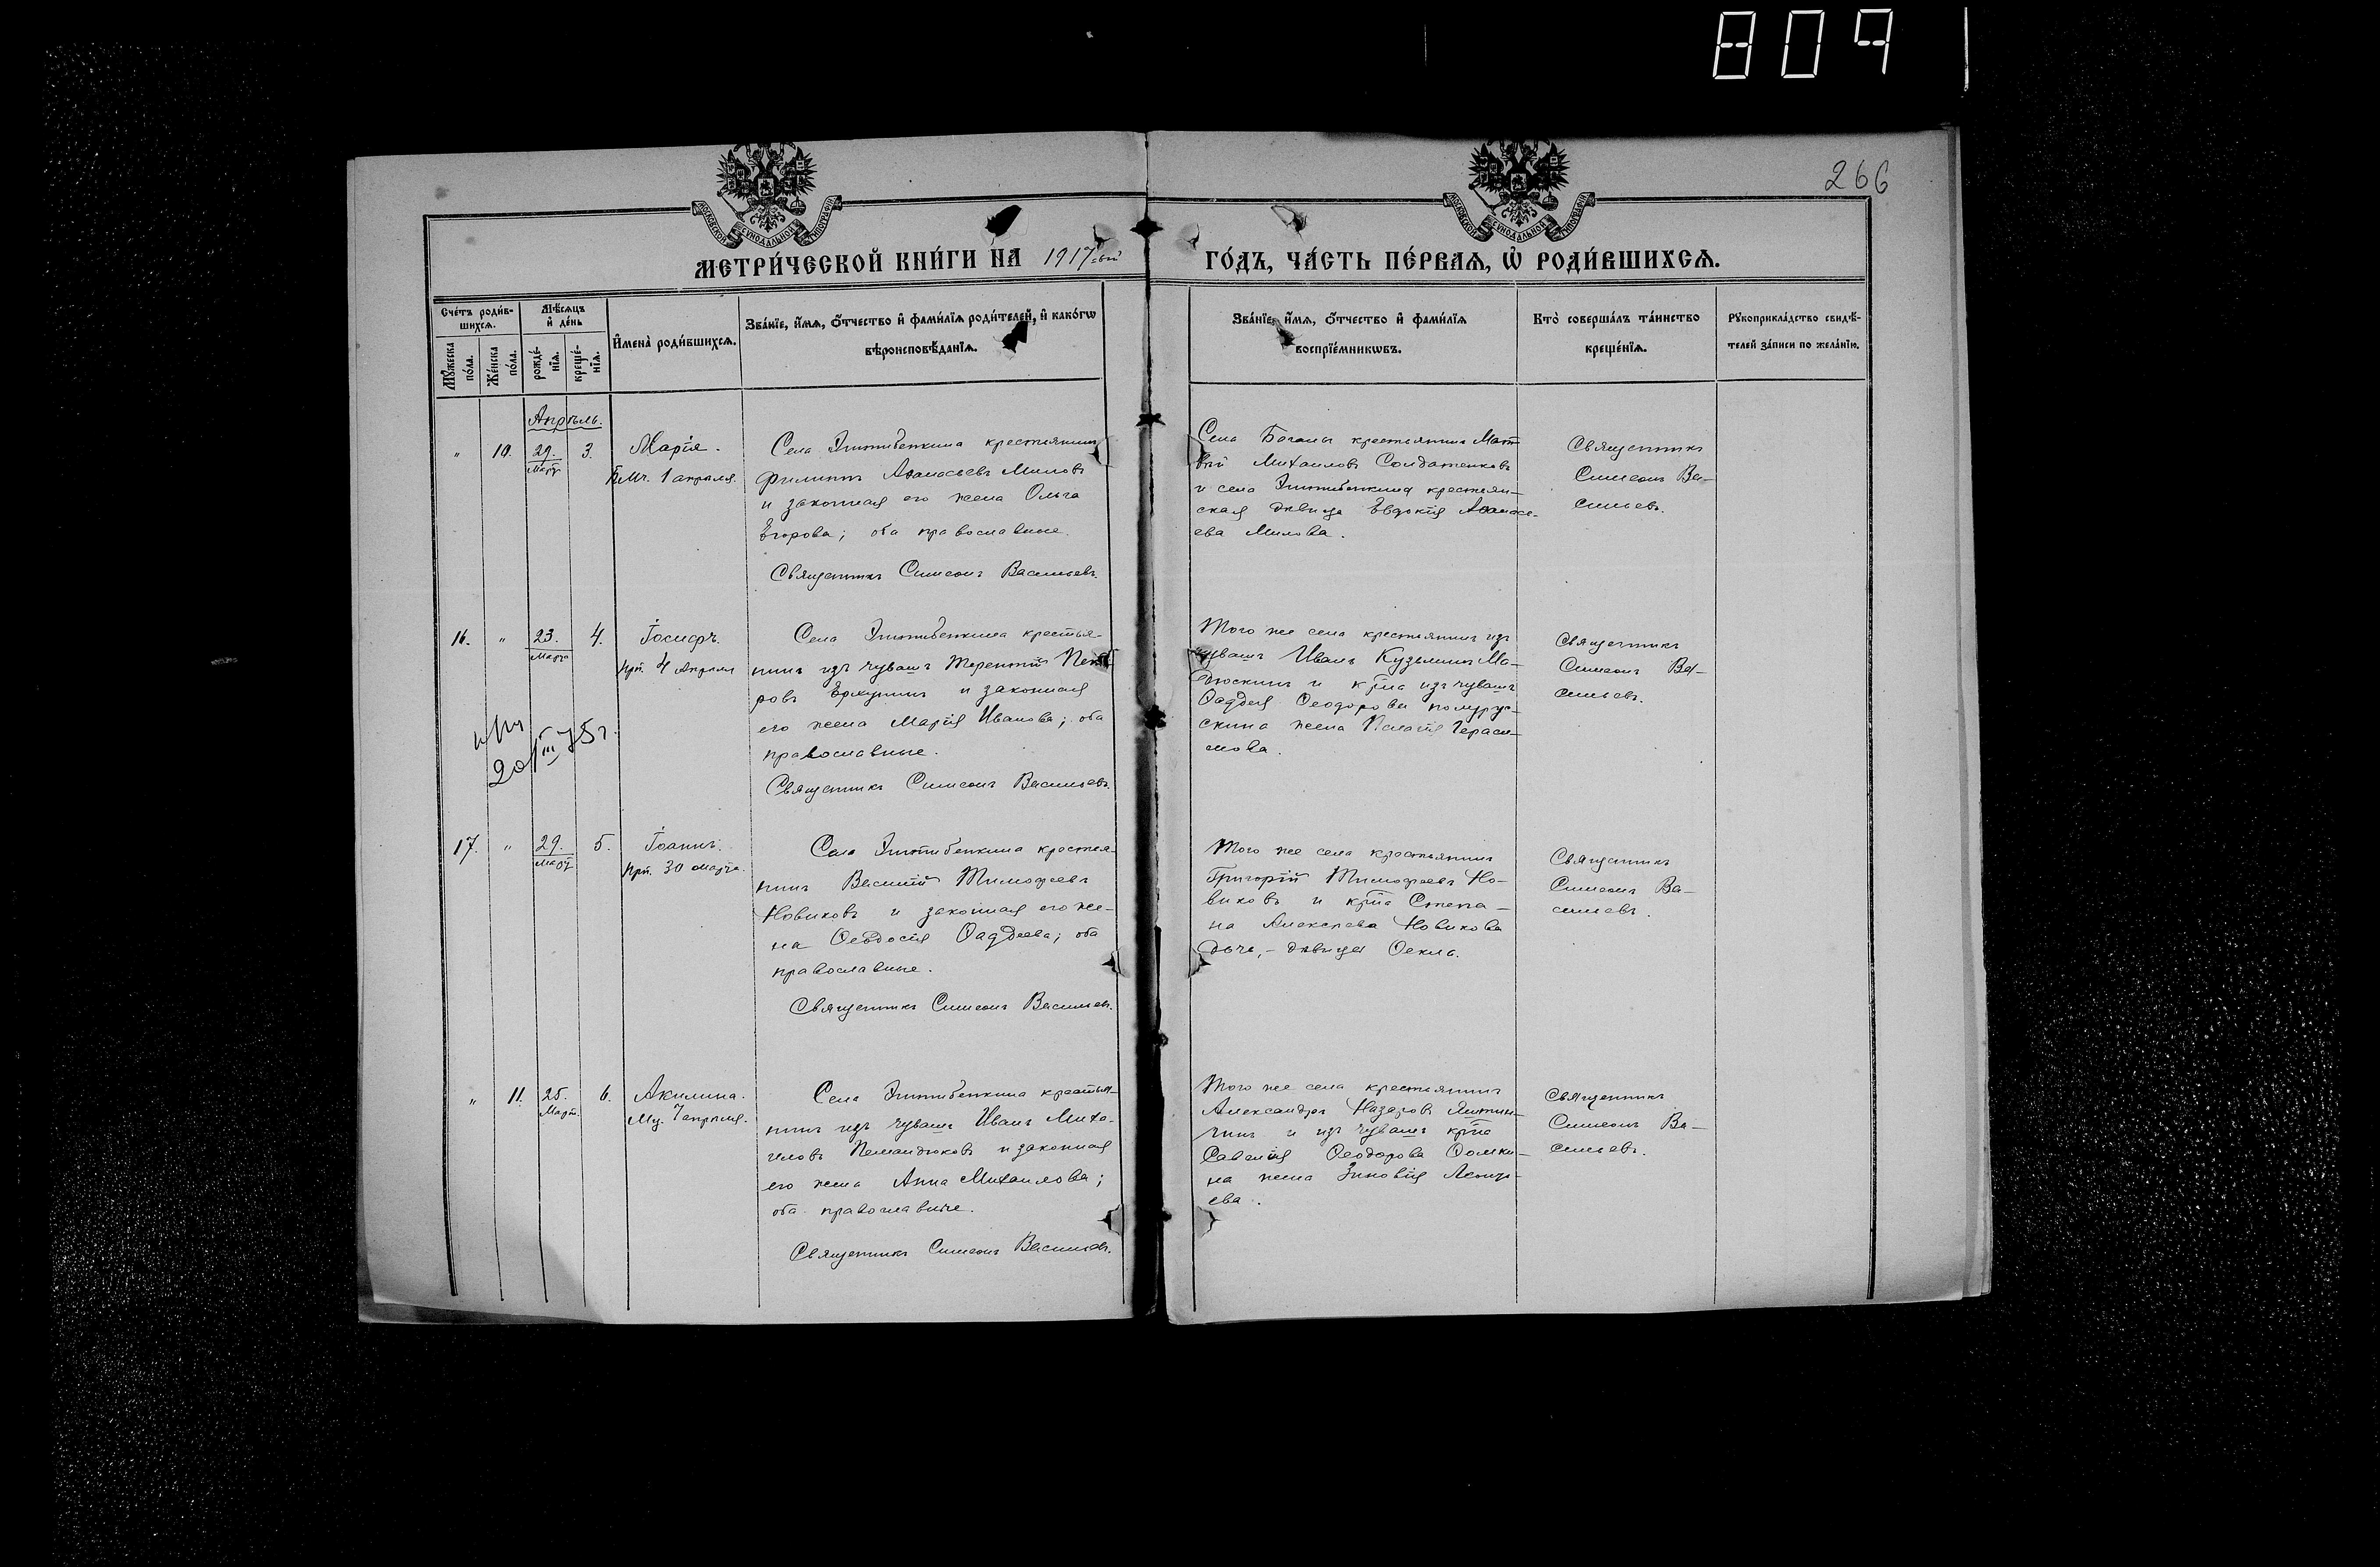 809
266
МОСКОВСКОЙ СѴНОДАЛЬНОЙ ТИПОГРАФІИ
МОСКОВСКОЙ СѴНОДАЛЬНОЙ ТИПОГРАФІИ
МЕТРИ́ЧЕСКОЙ КНИ́ГИ НА 1917-ый ГО́ДЪ, ЧА́СТЬ ПЕ́РВАѦ, Ѽ РОДИ́ВШИХСѦ.
Сче́тъ роди́в-
шихсѧ.
Мꙋ́жеска по́ла.
Же́нска по́ла.
Мѣ́сѧцъ и҆ де́нь
рожде́-
нїѧ.
креще́-
нїѧ.
И҆мена̀ роди́вшихсѧ.
Зва́нїе, и҆́мѧ, ѻ҆́тчество и҆ фами́лїѧ роди́телей, и҆ како́гѡ
вѣроисповѣ́данїѧ.
Зва́нїе, и҆́мѧ, ѻ҆́тчество и҆ фами́лїѧ
воспрїе́мникѡвъ.
Кто̀ соверша́лъ та́инство
креще́нїѧ.
Рꙋкоприкла́дство свидѣ́-
телей за́писи по жела́нїю.
Апрѣль.
" 10. 29. Март 3. Марія.
1 апрѣля.
Села крестьянинъ
Филиппъ Аѳанасьевъ Миловъ
и законная его жена Ольга
Егорова; оба православные.
Священникъ Симеонъ Васильевъ.
Села Боганы крестьянинъ Мат-
вѣй Михаиловъ Солдатенковъ
и села крестьян-
ская дѣвица Евдокія Аѳанась-
ева Милова.
Священникъ
Симеонъ Ва-
сильевъ.
16. " 23. Марта 4. Іосифъ.
прп. 4 Апрѣля
Села крестья-
нинъ изъ чувашъ Терентій Пет-
ровъ и законная
его жена Марія Иванова; оба
православные.
Священникъ Симеонъ Васильевъ.
Того же села крестьянинъ изъ
чувашъ Иванъ Кузьминъ Ма-
дюскинъ и кр-на изъ чувашъ
Ѳаддея Ѳеодорова
жена Пелагія Гераси-
мова.
Священникъ
Симеонъ Ва-
сильевъ.
20/III 75 г.
17. " 29. Март 5. Іоаннъ.
прп. 30 марта.
Села крестья-
нинъ Василій Тимофеевъ
Новиковъ и законная его же-
на Ѳеодосія Ѳаддеева; оба
православные.
Священникъ Симеонъ Васильевъ.
Того же села крестьянинъ
Григорій Тимофеевъ Но-
виковъ и кр-на Степа-
на Алексеева Новикова
дочь, - дѣвица Ѳекла.
Священникъ
Симеонъ Ва-
сильевъ.
" 11. 25. Март. 6. Акилина.
Муч. 7 апрѣля.
Села крестья-
нинъ изъ чувашъ Иванъ Миха-
иловъ и законная
его жена Анна Михаилова;
оба православные.
Священникъ Симеонъ Васильевъ.
Того же села крестьянинъ
Александръ Назаровъ
и изъ чувашъ кр-на
Савелія Ѳеодорова Ѳомки-
на жена Зиновія Леонть-
ева.
Священникъ
Симеонъ Ва-
сильевъ.